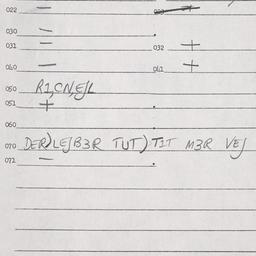 022 —
030 —
031 — 032 +
060 — 061 +
050 R1,CN,EJL
051 +
060
070 DER)LEJB3R TUT)TIT M3R VEJ
072 —